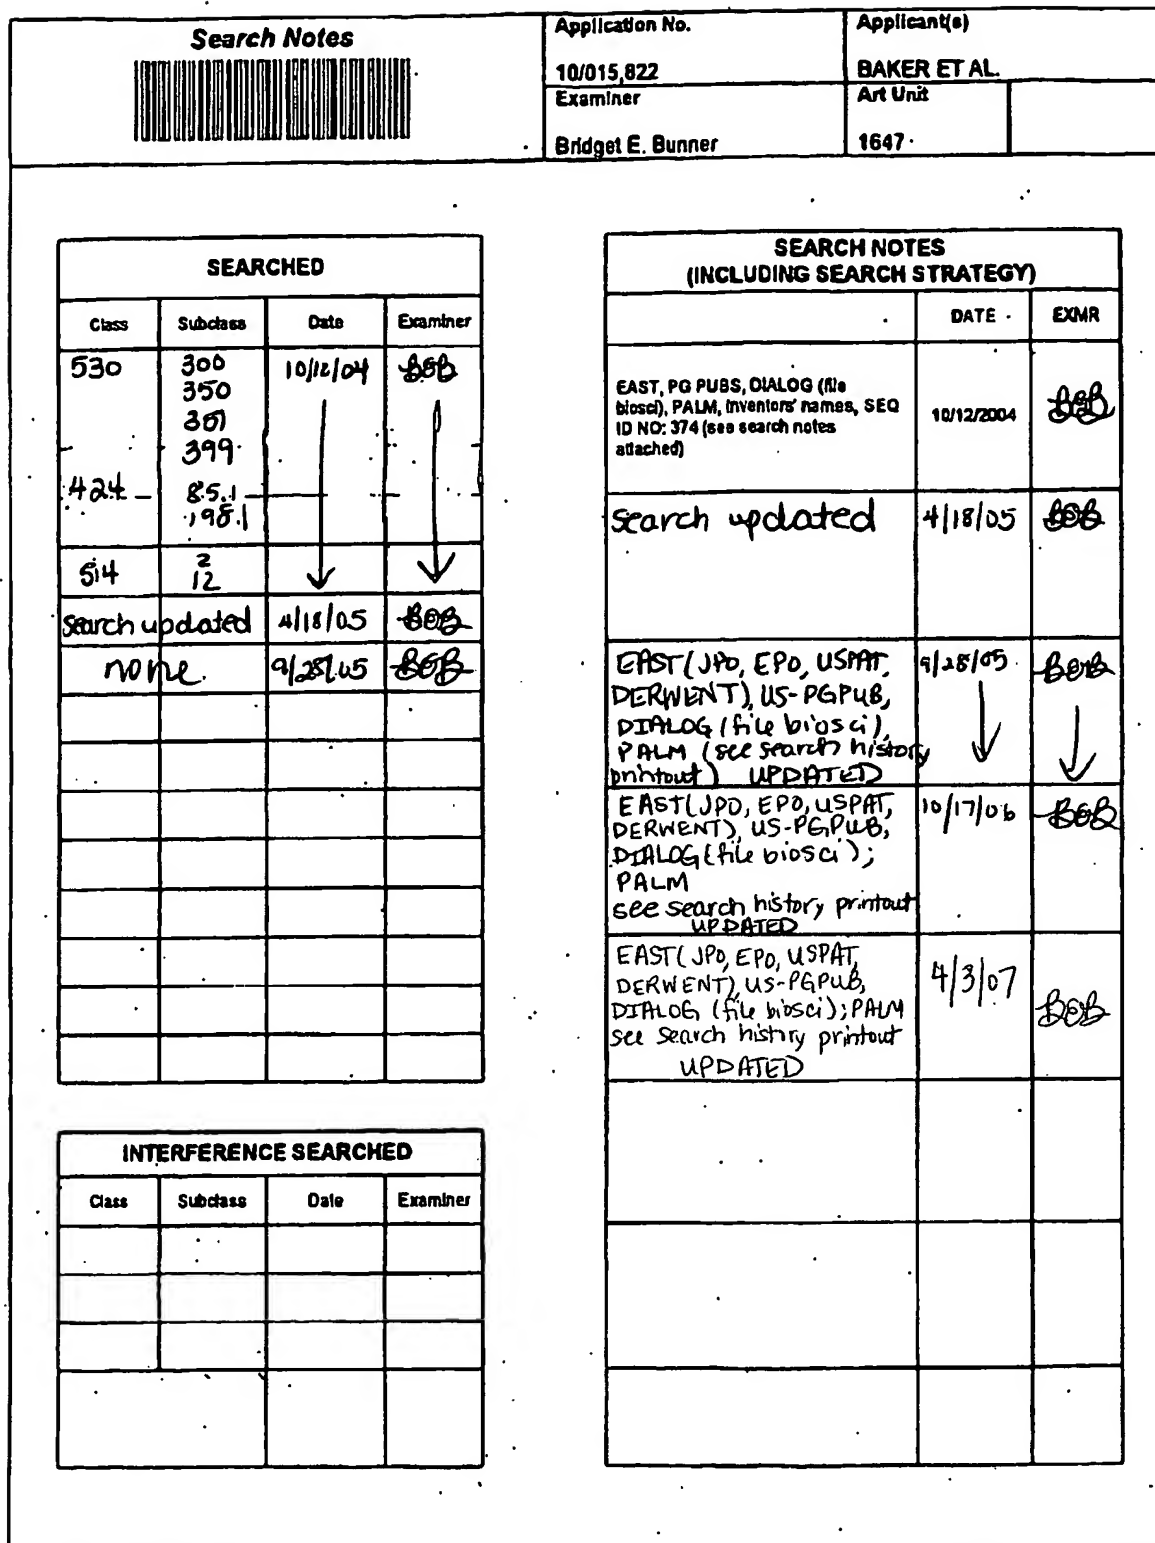 Search Notes
Application No.
10/015,822
Applicant(s)
BAKER ET AL.
Examiner
Bridget E. Bunner
Art Unit
1647
SEARCHED
Class Subclass Date Examiner
530 300 10/12/04 BEB
350
351
399
424 85.1
198.1
514 2
12
search updated 4/18/05 BEB
none. 9/28/05 BEB
INTERFERENCE SEARCHED
Class Subclass Date Examiner
SEARCH NOTES
(INCLUDING SEARCH STRATEGY)
DATE EXMR
EAST, PG PUBS, DIALOG (file
biosci), PALM, inventors' names, SEQ
ID NO: 374 (see search notes
attached)
10/12/2004 BEB
search updated 4/18/05 BEB
EAST(JPO, EPO, USPAT, 9/28/05 BEB
DERWENT), US-PGPUB,
DIALOG (file biosci),
PALM (see search history
printout) UPDATED
EAST(JPO, EPO, USPAT, 10/17/06 BEB
DERWENT), US-PGPUB,
DIALOG (file biosci);
PALM
see search history printout
UPDATED
EAST(JPO, EPO, USPAT, 4/3/07 BEB
DERWENT), US-PGPUB,
DIALOG (file biosci); PALM
see search history printout
UPDATED